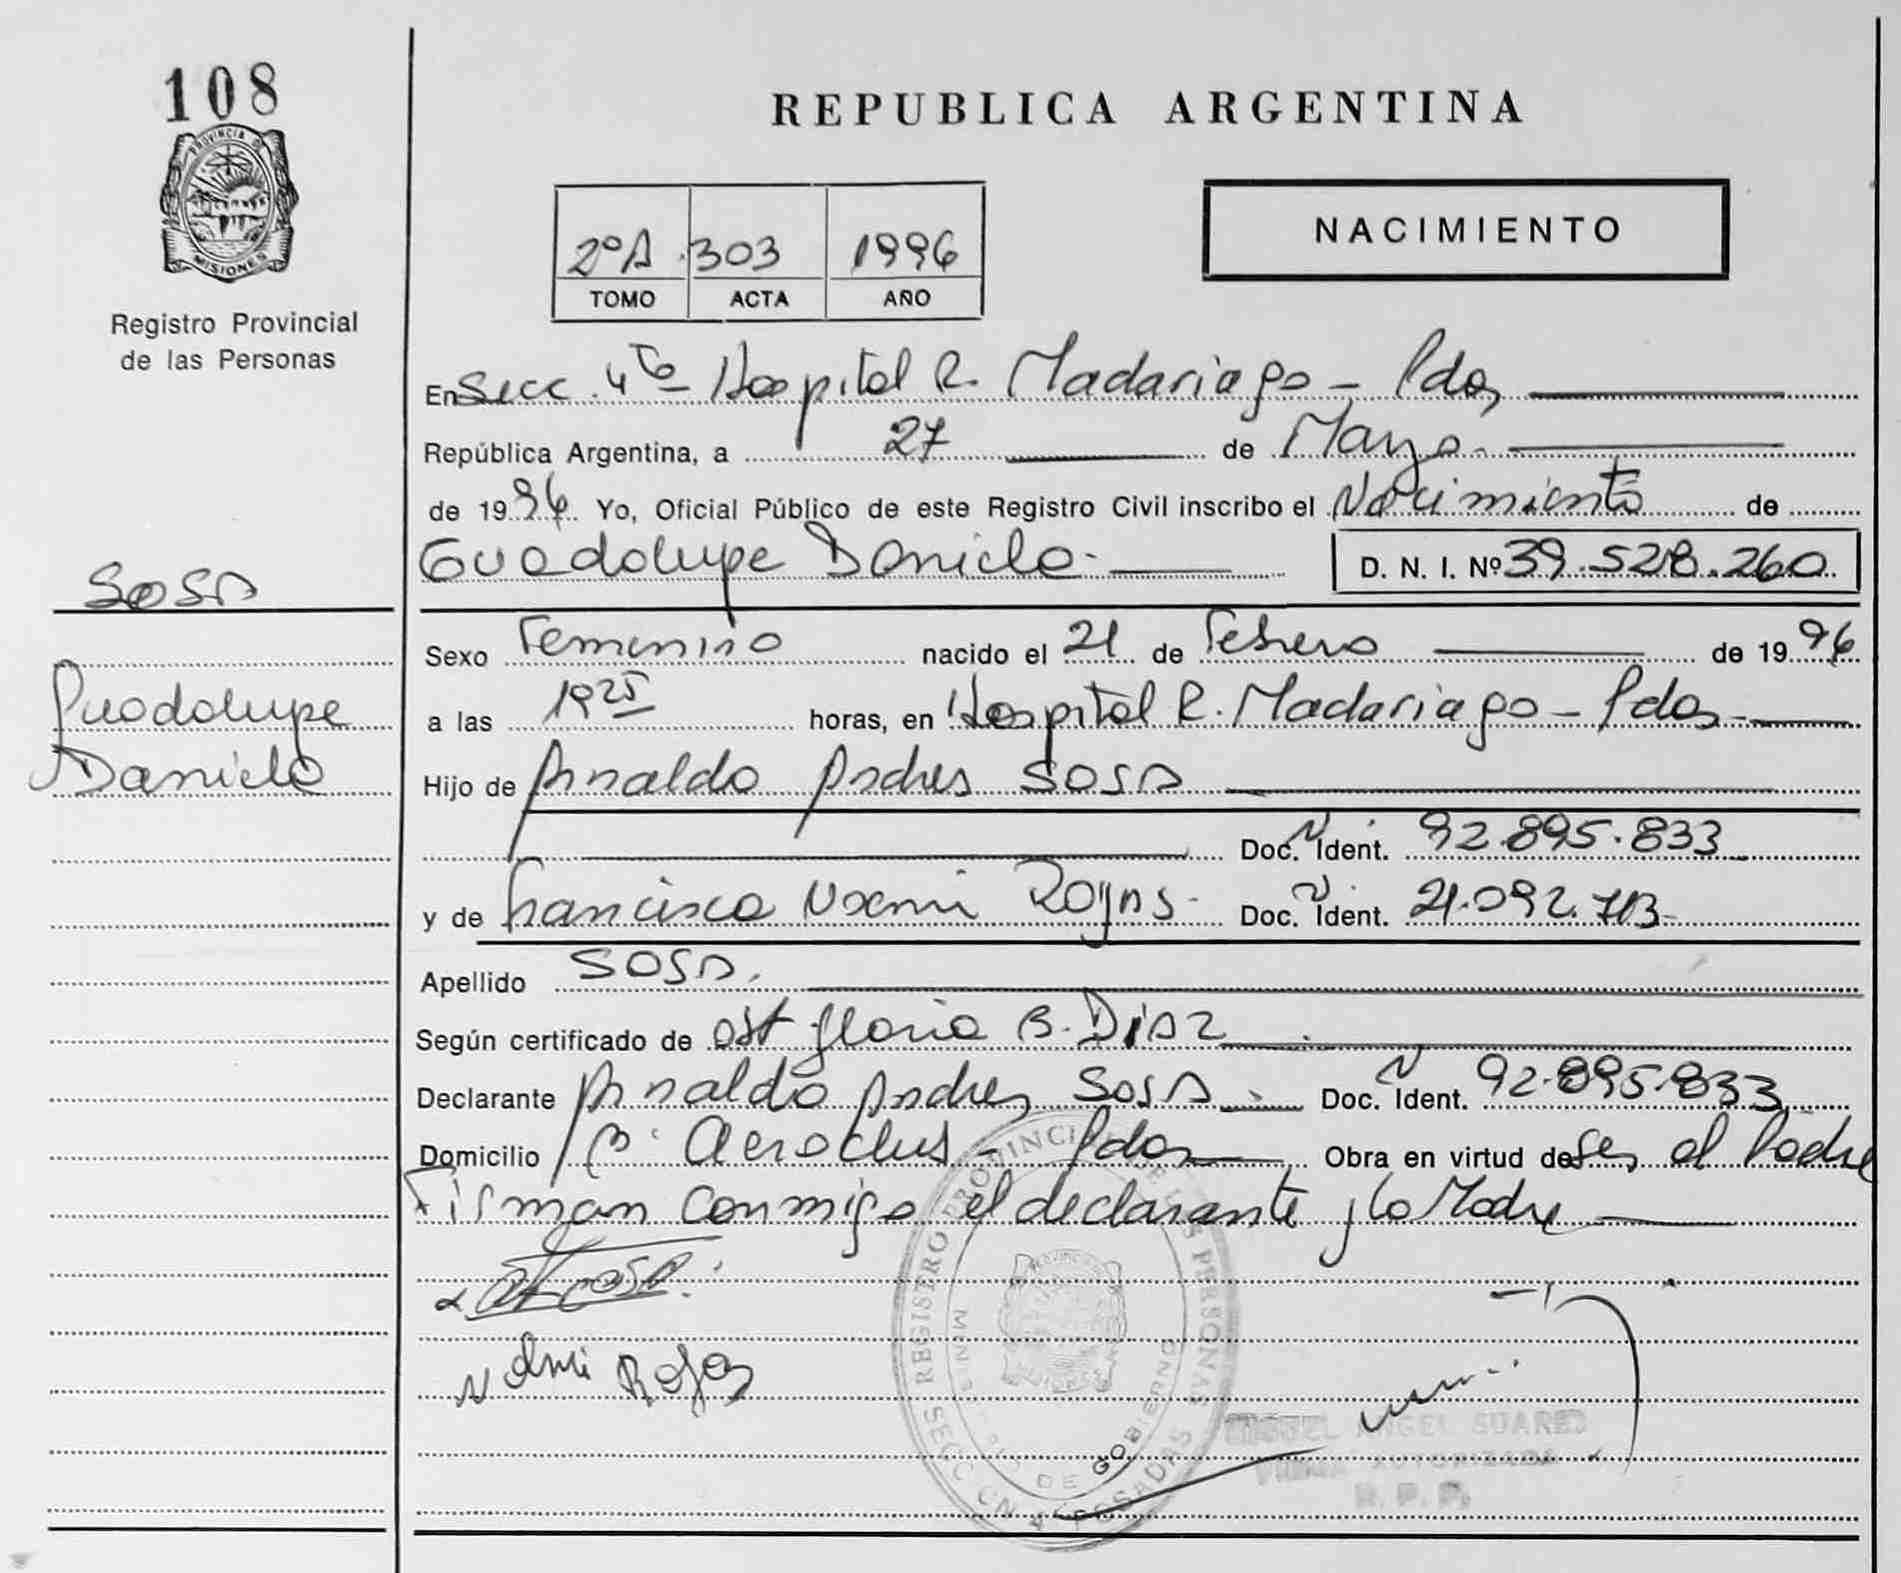 108
PROVINCIA D
MISIONES
Registro Provincial
de las Personas
REPUBLICA ARGENTINA
NACIMIENTO
2ºA 303 1996
TOMO ACTA AÑO
En Secc. 4ta Hospital R. Madariaga - Pdas
República Argentina, a 27 de Mayo
de 1996 Yo, Oficial Público de este Registro Civil inscribo el Nacimiento de
Guadalupe Daniela
D. N. I. Nº 39.528.260
SOSA
Guadalupe
Daniela
Sexo Femenino nacido el 21 de Febrero de 1996
a las 1925 horas, en Hospital R. Madariaga - Pdas
Hijo de Arnaldo Andres SOSA
Doc. Ident. 92.895.833
y de Francisca Noemi Rojas Doc. Ident. 21.092.713
Apellido SOSA.
Según certificado de Obst Gloria B. Diaz
Declarante Arnaldo Andres SOSA Doc. Ident. 92.895.833
Domicilio Bº Aeroclub - Pdas Obra en virtud de Ser el Padre
Firman conmigo el declarante y la Madre
Noemi Rojas
REGISTRO PROVINCIAL DE LAS PERSONAS
MINISTERIO DE GOBIERNO
SECCION 4 POSADAS
MIGUEL ANGEL SUAREZ
FIRMA AUTORIZADA
R. P. P.